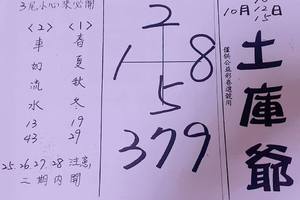 3尾小心來必開
<2> <1>
車如流水
13
43
春夏秋冬
19
29
25.26.27.28 注意
二期內開
2
1 8
5
379
僅供公益彩卷選號用
10月12日
15
土庫爺